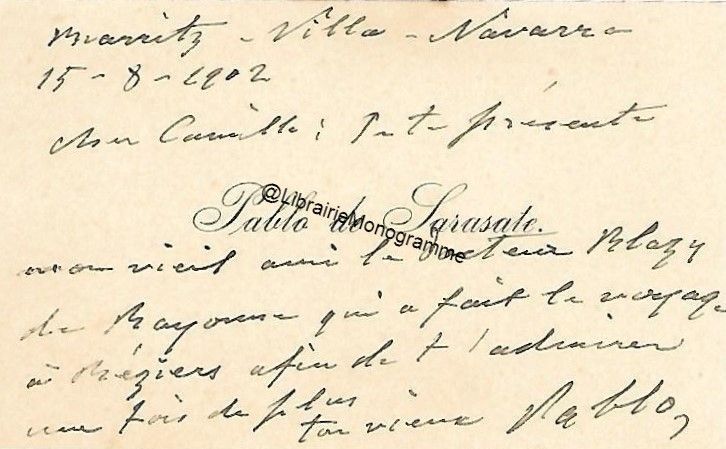 Biarritz - Villa - Navarra
15 - 8 - 1902
Cher Camille: Je te présente
Pablo de Sarasate.
@LibrairieMonogramme
mon vieil ami le Docteur Blazy
de Bayonne qui a fait le voyage
à Béziers afin de t'admirer
une fois de plus
ton vieux Pablo